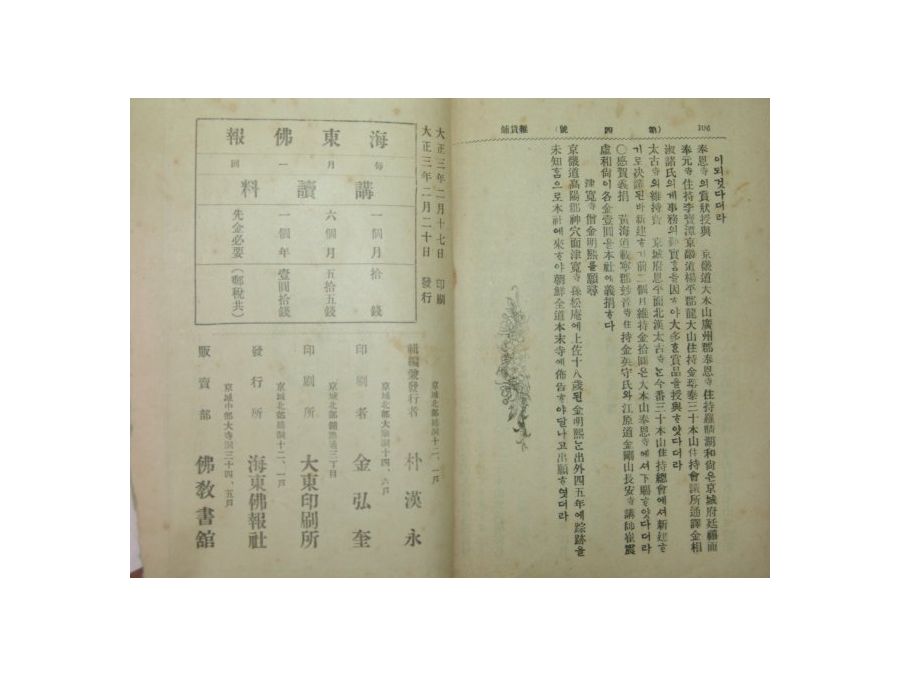 106 (第四號) 報賞舖
이되것다더라
奉恩寺의賞狀授與 京畿道大本山廣州郡奉恩寺住持羅晴湖和尙은京城府廷禧面
奉元寺住持李寶潭京畿道楊平郡龍大山住持金尋奉三十本山住持會議所通譯金相
淑諸氏의게事務의勤實홈을因ᄒᆞ야大多ᄒᆞᆫ賞品을授與ᄒᆞ얏다더라
太古寺의維持費 京城府恩平面北漢太古寺ᄂᆞᆫ今番三十本山住持總會에셔新建ᄒᆞ
기로決諄된바新建ᄒᆞ기前二個月維持金拾圓은大本山奉恩寺에셔下賜ᄒᆞ얏다더라
○感賀義捐 黃海道載寧郡妙音寺住持金英守氏와江原道金剛山長安寺講師崔震
虛和尙이各金壹圓을本社에義捐ᄒᆞ다
津寬寺僧金明熙를願尋
京畿道高陽郡神穴面津寬寺孫松庵에上佐十八歲된金明熙ᄂᆞᆫ出外四五年에踪跡을
未知홈으로本社에來ᄒᆞ야朝鮮全道本末寺에佈告ᄒᆞ야달나고出願ᄒᆞ엿더라
大正三年二月十七日 印刷
大正三年二月二十日 發行
海東佛報
每月一回
購讀料
一個月 拾錢
六個月 五拾五錢
一個年 壹圓拾錢
先金必要 (郵稅共)
京城北部 十二、一戶
輯編兼發行者 朴漢永
京城北部大 十四、六戶
印刷者 金弘奎
京城北部 三丁目
印刷所 大東印刷所
京城北部 十二、一戶
發行所 海東佛報社
京城中部大寺洞三十四、五戶
販賣部 佛敎書館